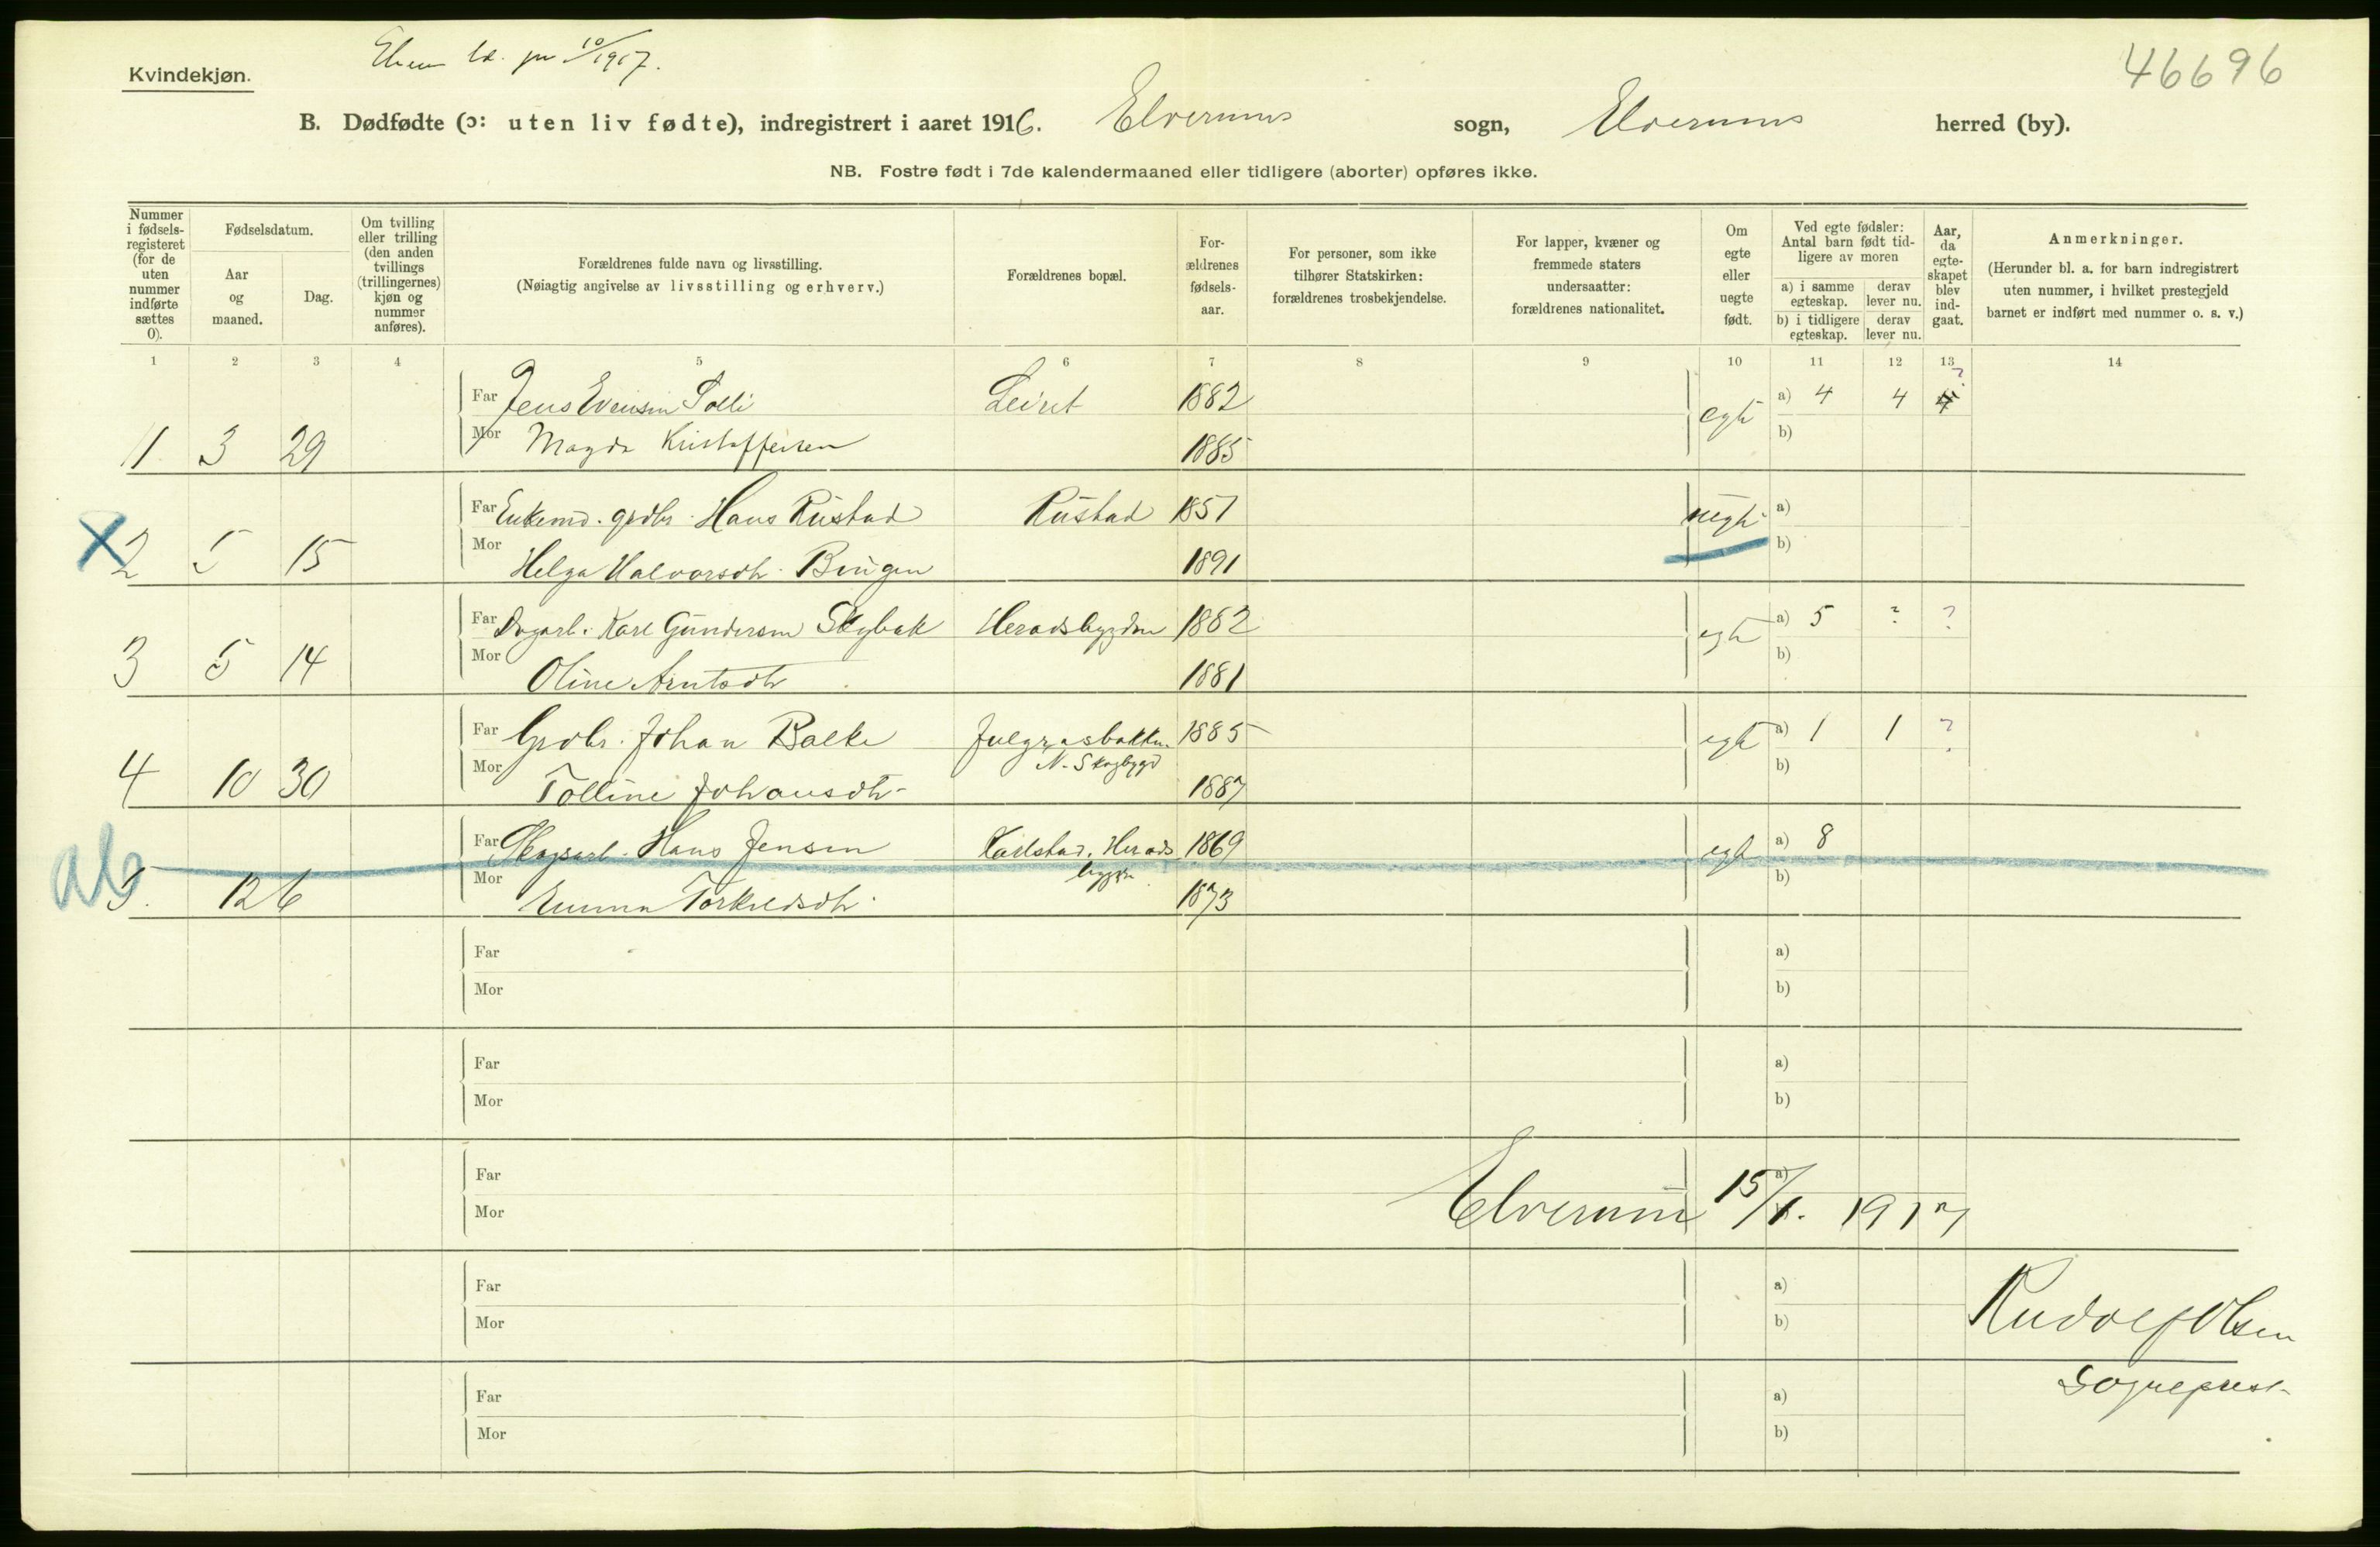 Kvindekjøn.
10/1917.
46696
B. Dødfødte (ɔ: uten liv fødte), indregistrert i aaret 1916. Elverums sogn, Elverums herred (by).
NB. Fostre født i 7de kalendermaaned eller tidligere (aborter) opføres ikke.
Nummer i fødsels-registeret (for de uten nummer indførte sættes 0).
Fødselsdatum.
Aar og maaned.
Dag.
Om tvilling eller trilling (den anden tvillings (trillingernes) kjøn og nummer anføres).
Forældrenes fulde navn og livsstilling.
(Nøiagtig angivelse av livsstilling og erhverv.)
Forældrenes bopæl.
For-ældrenes fødsels-aar.
For personer, som ikke tilhører Statskirken: forældrenes trosbekjendelse.
For lapper, kvæner og fremmede staters undersaatter: forældrenes nationalitet.
Om egte eller uegte født.
Ved egte fødsler: Antal barn født tid-ligere av moren
a) i samme egteskap.
derav lever nu.
b) i tidligere egteskap.
derav lever nu.
Aar, da egte-skapet blev ind-gaat.
Anmerkninger.
(Herunder bl. a. for barn indregistrert uten nummer, i hvilket prestegjeld barnet er indført med nummer o. s. v.)
1 2 3 4 5 6 7 8 9 10 11 12 13 14
Far Jens Evensen Solli Leiret 1882 egte a) 4 4 4 ?
1 3 29 Mor Magda Kristoffersen 1885 b)
Far Enkemd. grdbr. Hans Rustad Rustad 1851 uegte a)
X 2 5 15 Mor Helga Halvorsdtr. Bingen 1891 b)
Far Dagarb. Karl Gundersen Skybak Heradsbygden 1882 egte a) 5 ? ?
3 5 14 Mor Oline Arntsdtr 1881 b)
Far Grdbr. Johan Balke Julgrasbakken. N. Skogbygd 1885 egte a) 1 1 ?
4 10 30 Mor Tolline Johansdtr. 1887 b)
Far Skogsarb. Hans Jensen Karlstad, Herads bygden 1869 egte a) 8
ab 5. 12 6 Mor Emma Torkildsdtr. 1873 b)
Far a)
Mor b)
Far a)
Mor b)
Far a)
Mor
Elverum 15/1. 1917
Far a)
Mor b)
Rudolf Olsen
Sogneprest
Far a)
Mor b)